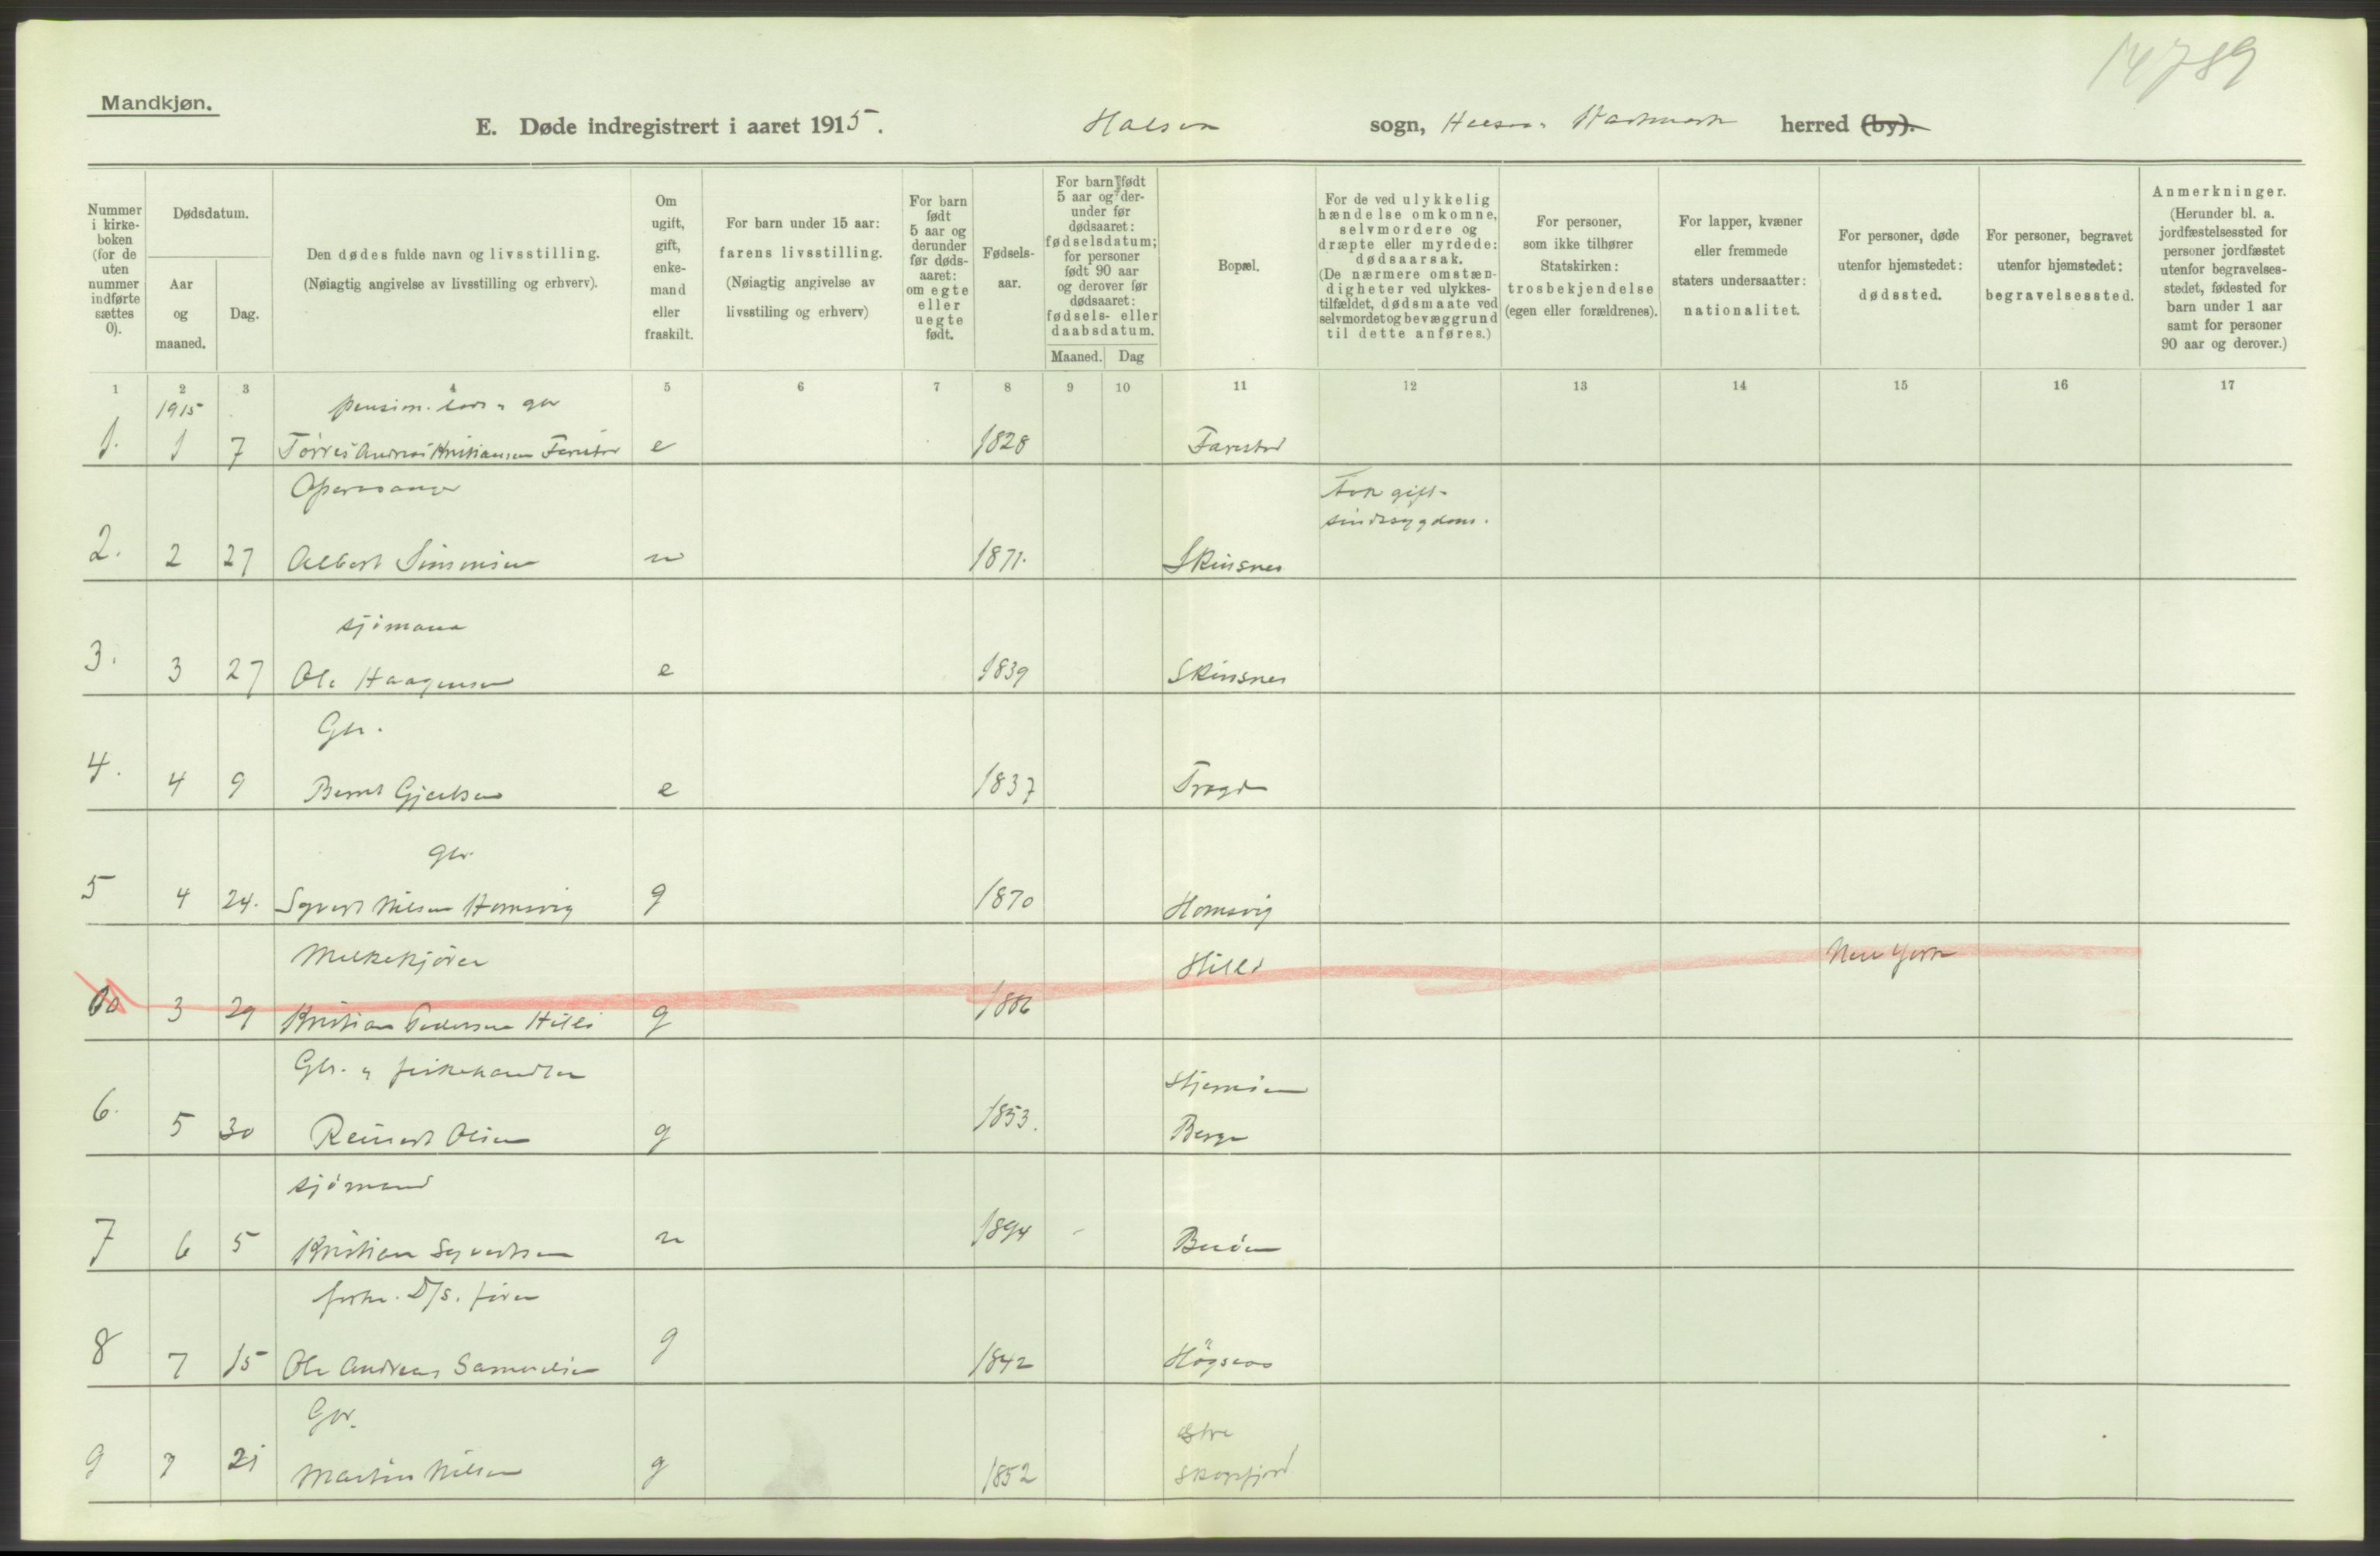 14789
Mandkjøn.
E. Døde indregistrert i aaret 1915. Halsen sogn, Halsaa Hartmark herred (by).
Nummer i kirkeboken (for de uten nummer indførte sættes 0).
Dødsdatum.
Aar og maaned.
Dag.
Den dødes fulde navn og livsstilling.
(Nøiagtig angivelse av livsstilling og erhverv).
Om ugift, gift, enkemand eller fraskilt.
For barn under 15 aar:
farens livsstilling.
(Nøiagtig angivelse av livsstiling og erhverv)
For barn født 5 aar og derunder før dødsaaret: om egte eller uegte født.
Fødselsaar.
For barn født 5 aar og derunder før dødsaaret: fødselsdatum; for personer født 90 aar og derover før dødsaaret: fødsels- eller daabsdatum.
Maaned. Dag
Bopæl.
For de ved ulykkelig hændelse omkomne, selvmordere og dræpte eller myrdede: dødsaarsak.
(De nærmere omstændigheter ved ulykkestilfældet, dødsmaate ved selvmordet og bevæggrund til dette anføres.)
For personer, som ikke tilhører Statskirken: trosbekjendelse (egen eller forældrenes).
For lapper, kvæner eller fremmede staters undersaatter: nationalitet.
For personer, døde utenfor hjemstedet: dødssted.
For personer, begravet utenfor hjemstedet: begravelsessted.
Anmerkninger.
(Herunder bl. a. jordfæstelsessted for personer jordfæstet utenfor begravelsesstedet, fødested for barn under 1 aar samt for personer 90 aar og derover.)
1 2 3 4 5 6 7 8 9 10 11 12 13 14 15 16 17
1915 pension. lods
1. 1 7 Tørres Andreas Kristiansen Farestad e 1828 Farestad
Operasanger Tok gift-
sindssygdom.
2. 2 27 Albert Simonsen u 1871. Skinsnes
sjømand
3. 3 27 Ole Haagensen e 1839 Skinsnes
Gbr.
4. 4 9 Bernt Gjertsen e 1837 Tregde
Gbr.
5 4 24. Syvert Nilsen Homsvig g 1870 Homsvig
Melkekjører Hille New York
3 29 Kristian Pedersen Hille g 1886
Gbr. & fiskehandler
6. 5 30 Reinert Olsen g 1853. Berge
sjømand
7 6 5 Kristian Syvertsen u 1894 -
D/S. fører
8 7 15 Ole Andreas Samuelsen g 1842
Gbr.
9 7 21 Martin Nilsen g 1852 Skogsfjord